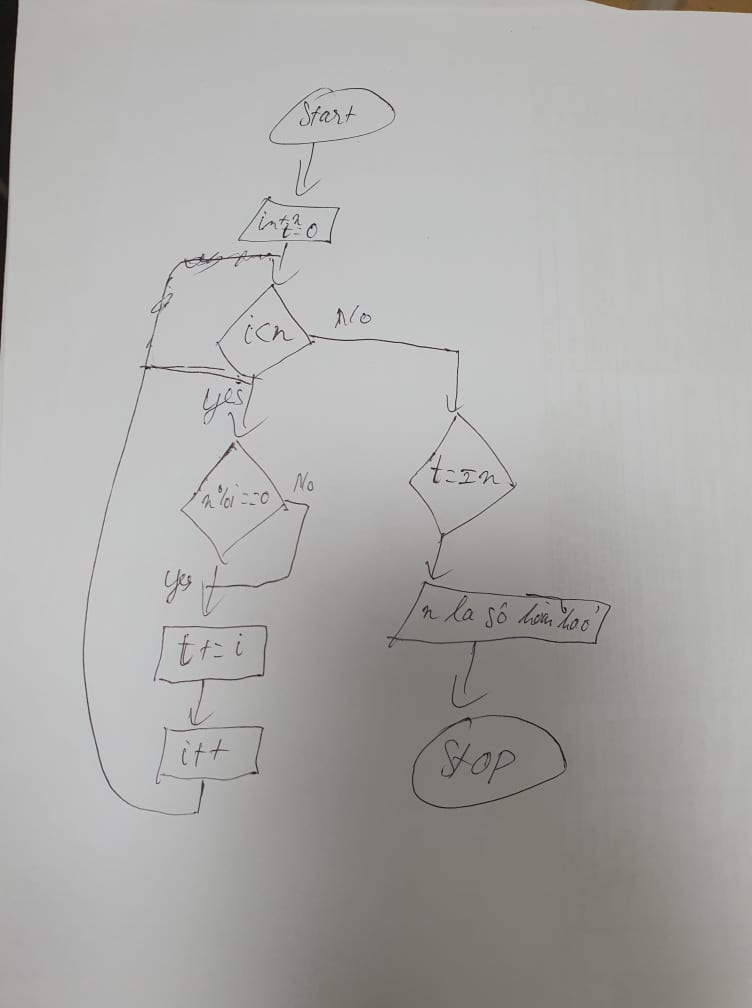 Start
int n
t=0
i<n
No
yes
n%i==0
No
yes
t==n
n la số hoàn hảo
t+=i
i++
Stop